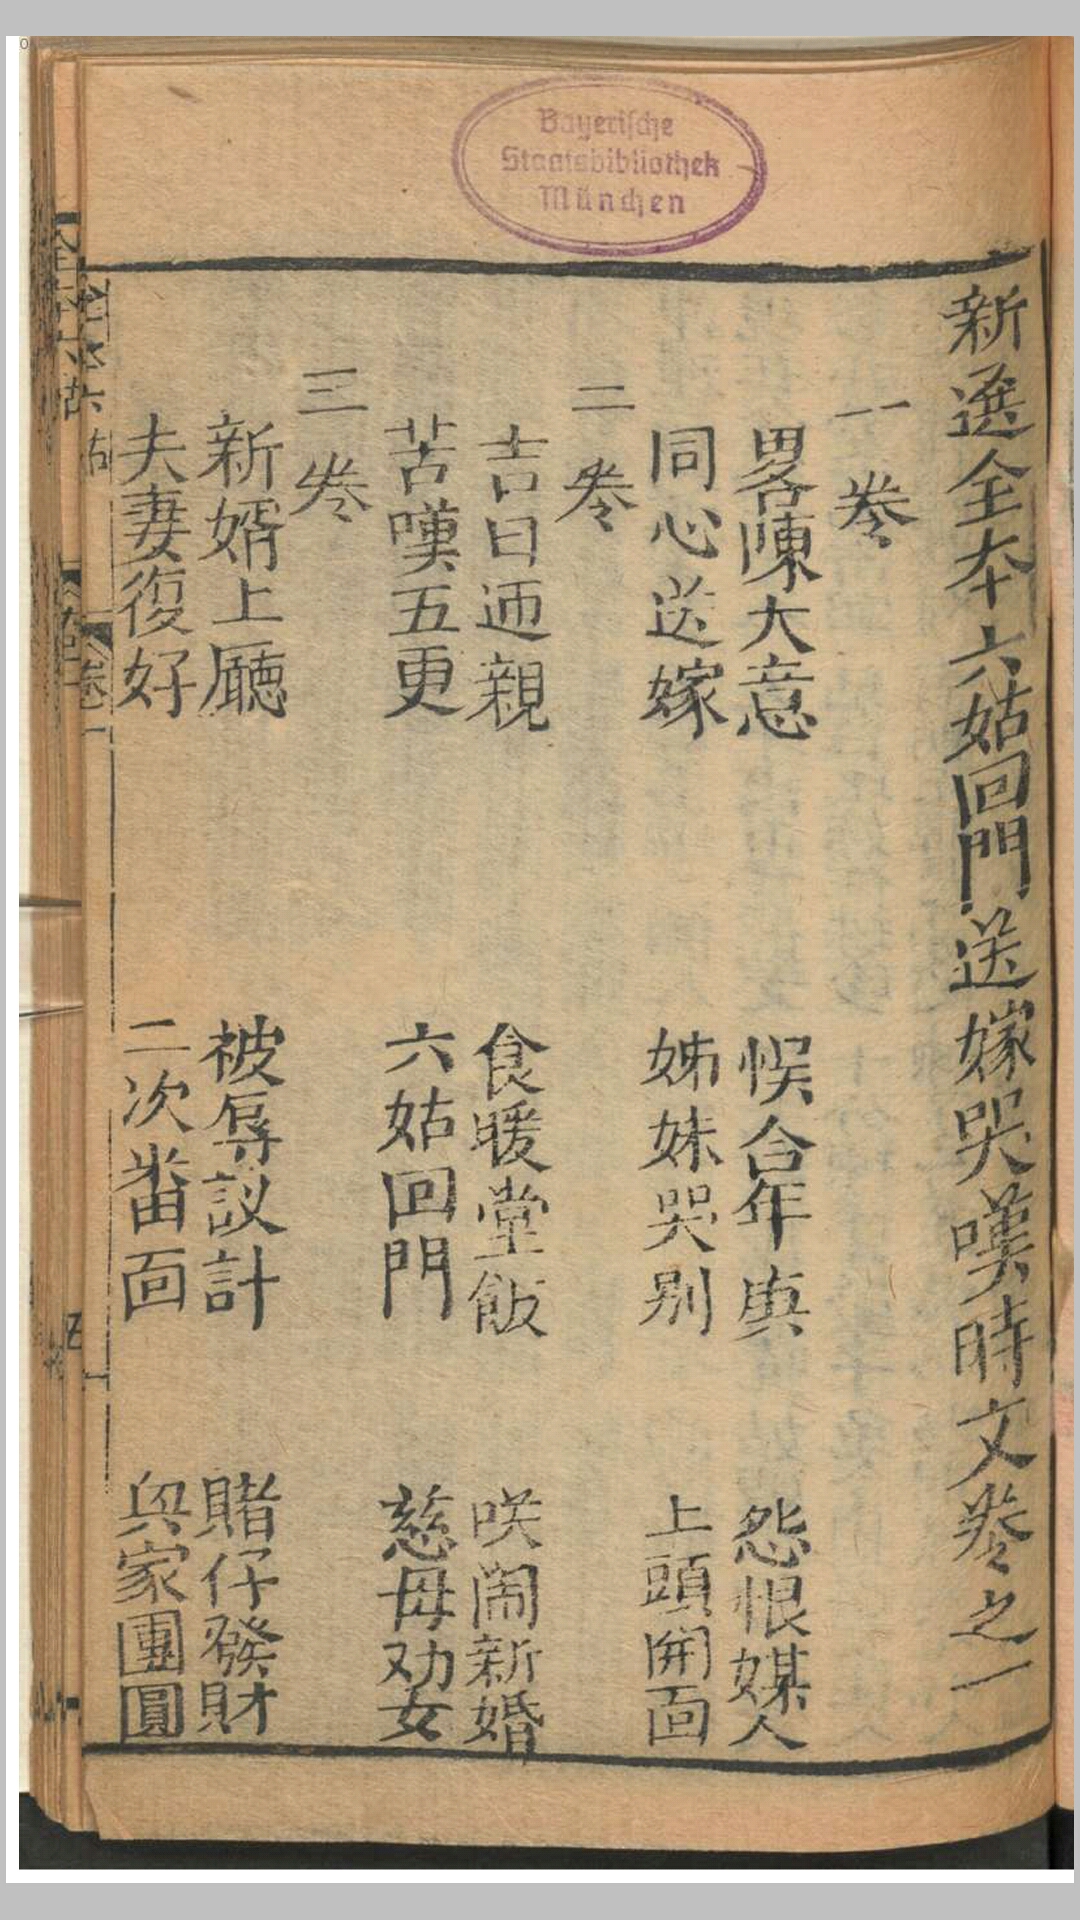 Bayerische
Staatsbibliothek
München
新選全本六姑回門送嫁哭嘆時文卷之一
一卷
畧陳大意 悞合年庚 怨恨媒人
同心送嫁 姊妹哭别 上頭開面
二卷
吉日迊親 食暖堂飯 咲鬧新婚
苦嘆五更 六姑回門 慈母劝女
三卷
新婿上廳 被辱設計 賭仔發財
夫妻復好 二次畨面 與家團圓